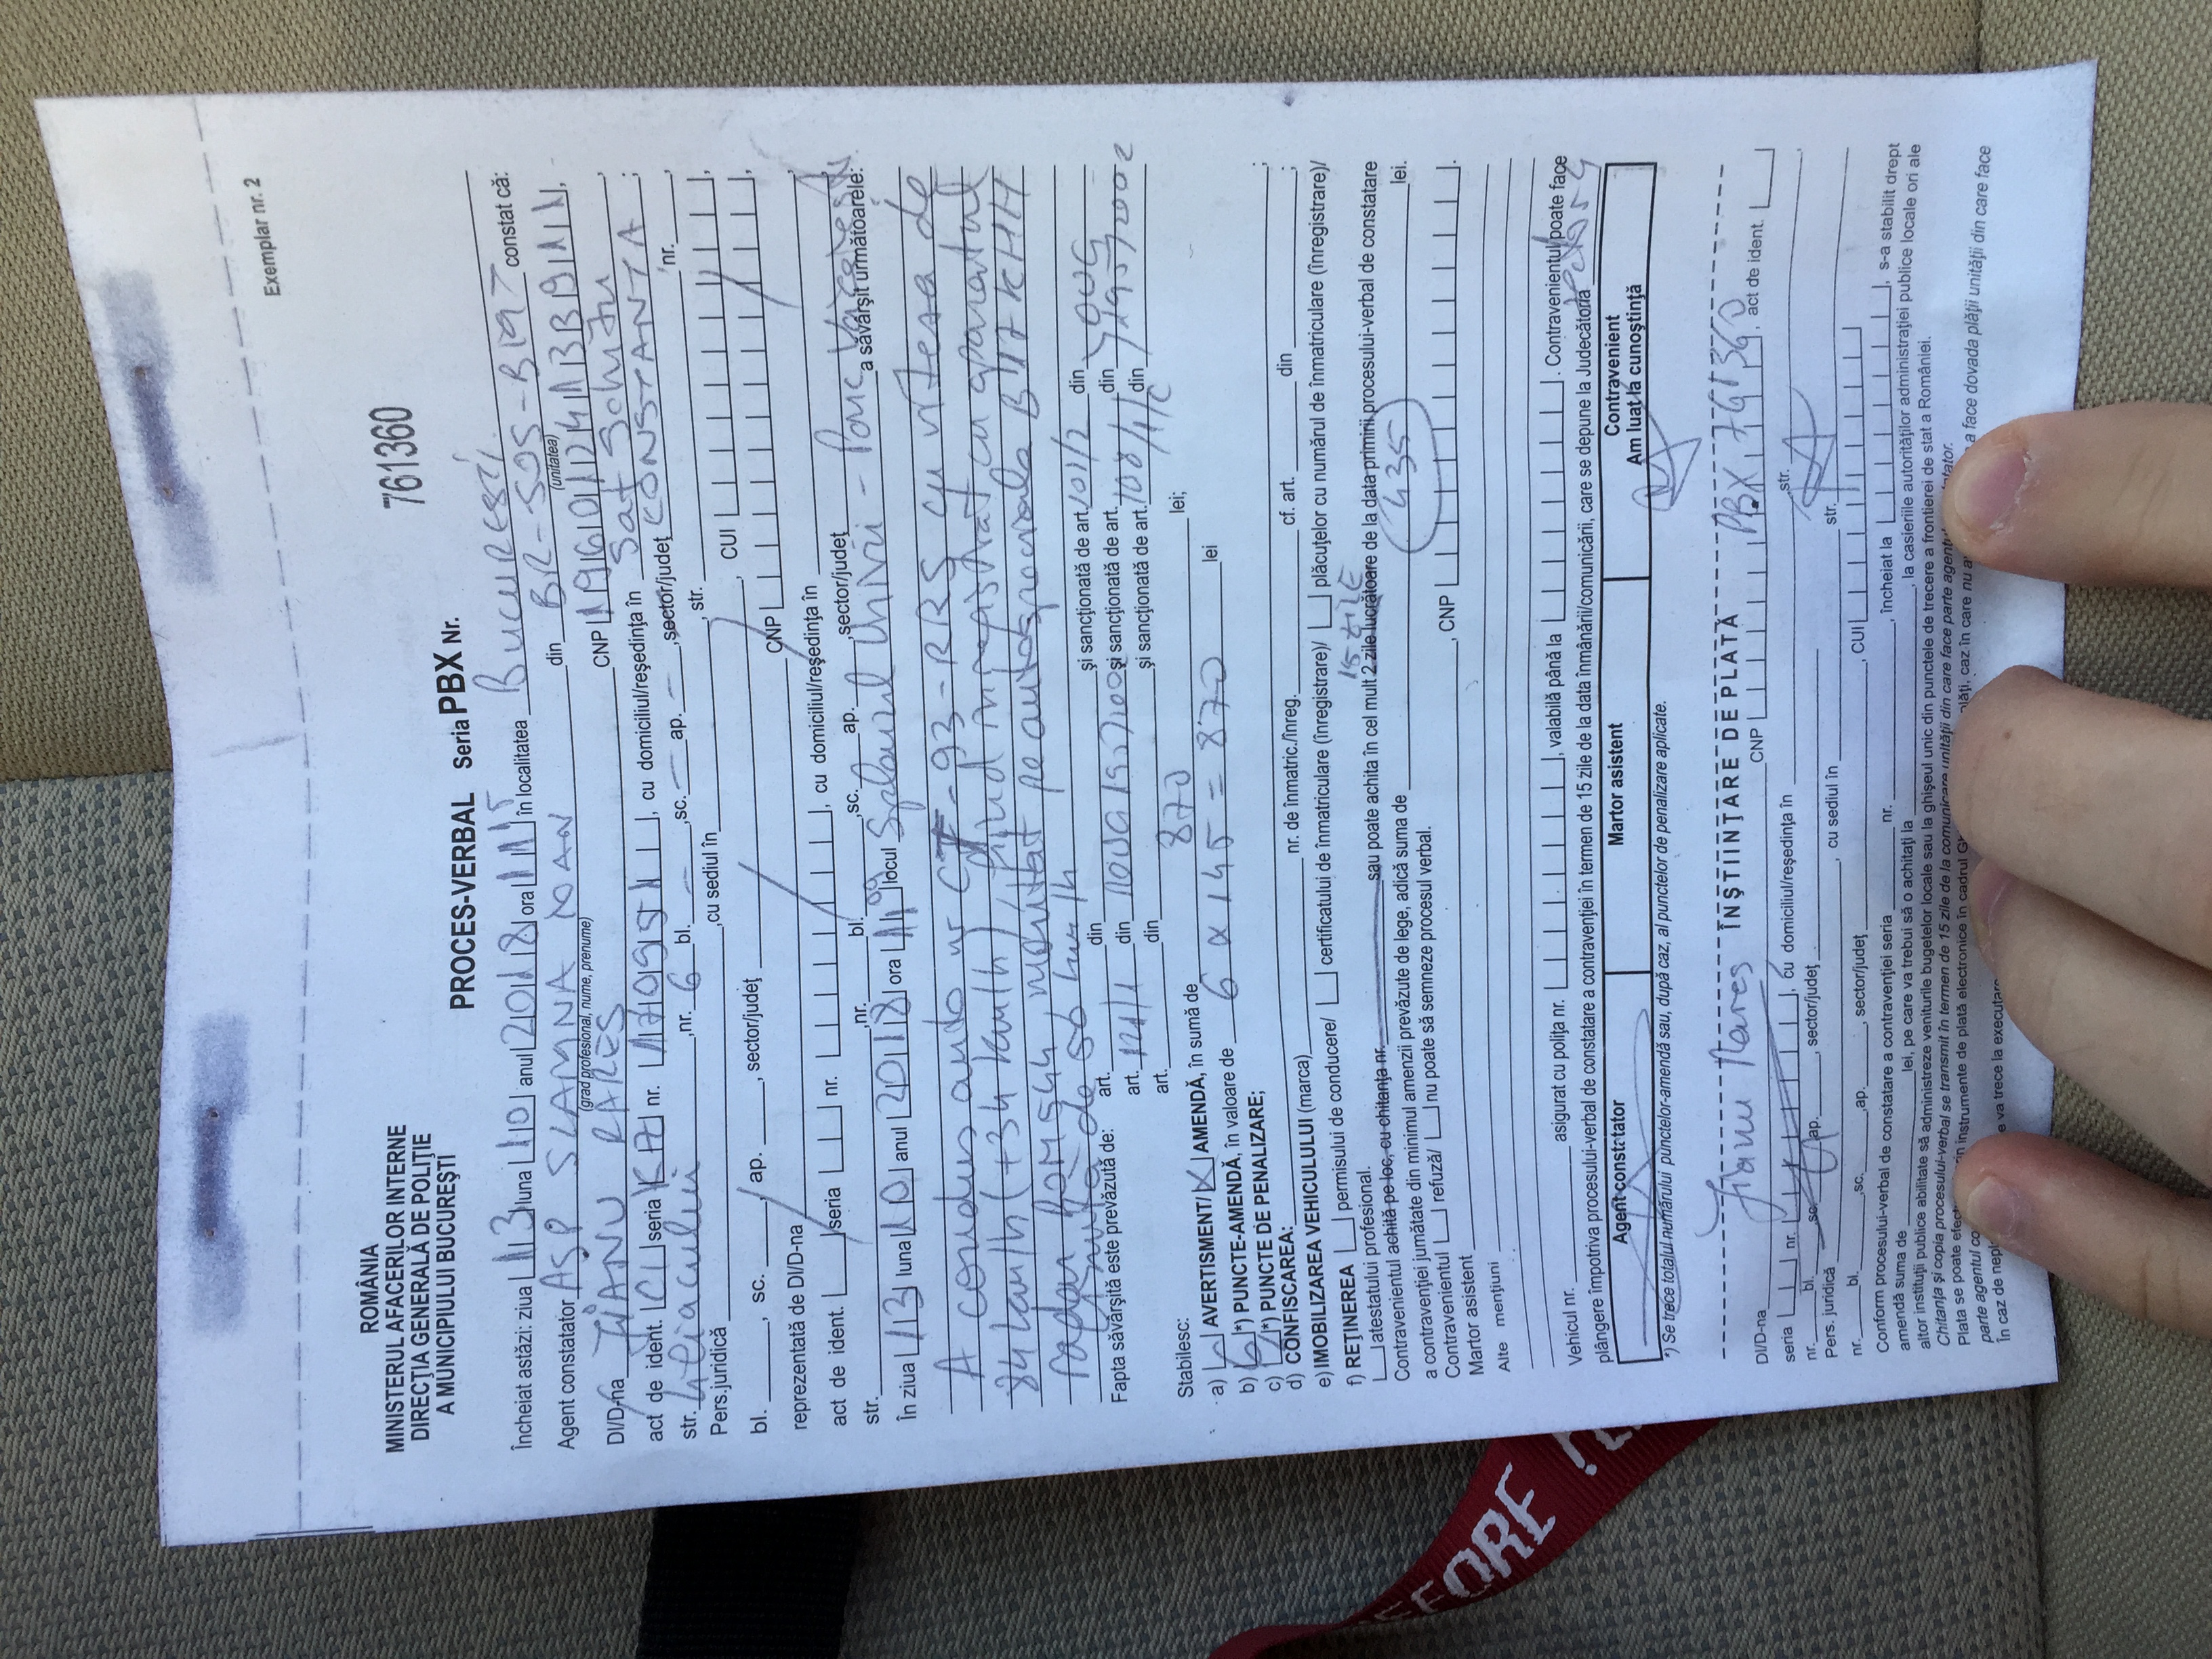 Exemplar nr. 2
ROMÂNIA
MINISTERUL AFACERILOR INTERNE
DIRECŢIA GENERALĂ DE POLIŢIE
A MUNICIPIULUI BUCUREŞTI
761360
PROCES-VERBAL Seria PBX Nr.
Încheiat astăzi: ziua 13 luna 10 anul 2018 ora 11 15 în localitatea Bucureşti
Agent constatator AŞP SLAMNA IOAN din BR-SOS-B197 constat că:
(grad profesional, nume, prenume) (unitatea)
Dl/D-na JIANU RARES CNP
act de ident. CI seria KZ nr. 170951, cu domiciliul/reşedinţa în Sat Schitu,
str. Liliacului, nr. 6 bl. - , sc. - ap. - , sector/judeţ CONSTANTA;
Pers.juridică ,cu sediul în , str. nr. ,
bl. , sc. , ap. , sector/judeţ , CUI ,
reprezentată de Dl/D-na CNP ,
act de ident. seria nr. , cu domiciliul/reşedinţa în ,
str. ,nr. bl. ,sc. ap. ,sector/judeţ
În ziua 13 luna 10 anul 2018 ora 11 09 locul Splaiul Unirii - Parc Văcăreşti a săvârşit următoarele:
A condus auto nr CT-93-RRS cu viteza de
84 km/h (+34 km/h), fiind înregistrat cu aparatul
radar ROM544, montat pe autospeciala B 17 KHH
limită de 50 km/h
Fapta săvârşită este prevăzută de: art. din şi sancţionată de art. 101/2 din OUG
art. 121/1 din 195/2002 şi sancţionată de art. 108/1/c din 195/2002
art. din şi sancţionată de art. din
Stabilesc:
a) AVERTISMENT/ X AMENDĂ, în sumă de 870 lei;
b) 6 *) PUNCTE-AMENDĂ, în valoare de 6 x 145 = 870 lei
c) *) PUNCTE DE PENALIZARE;
d) CONFISCAREA: ;
e) IMOBILIZAREA VEHICULULUI (marca) nr. de înmatric./înreg. cf. art. din ;
f) REŢINEREA permisului de conducere/ certificatului de înmatriculare (înregistrare)/ plăcuţelor cu numărul de înmatriculare (înregistrare)/
atestatului profesional.
15 ZILE
Contravenientul achită pe loc, cu chitanţa nr. sau poate achita în cel mult 2 zile lucrătoare de la data primirii procesului-verbal de constatare
a contravenţiei jumătate din minimul amenzii prevăzute de lege, adică suma de 435 lei.
Contravenientul refuză/ nu poate să semneze procesul verbal.
Martor asistent , CNP .
Alte menţiuni
Vehicul nr. asigurat cu poliţa nr. , valabilă până la . Contravenientul poate face
plângere împotriva procesului-verbal de constatare a contravenţiei în termen de 15 zile de la data înmânării/comunicării, care se depune la Judecătoria
Agent constatator Martor asistent Contravenient
Am luat la cunoştinţă
*) Se trece totalul numărului punctelor-amendă sau, după caz, al punctelor de penalizare aplicate.
ÎNŞTIINŢARE DE PLATĂ
Dl/D-na Jianu Rares CNP PBX 761360, act de ident.
seria nr. , cu domiciliul/reşedinţa în ,str. ,
nr. bl. ,sc. ap. , sector/judeţ
Pers. juridică , cu sediul în str.
nr. bl. ,sc. ,ap. , sector/judeţ , CUI
Conform procesului-verbal de constatare a contravenţiei seria nr. , încheiat la , s-a stabilit drept
amendă suma de lei, pe care va trebui să o achitaţi la , la casieriile autorităţilor administraţiei publice locale ori ale
altor instituţii publice abilitate să administreze veniturile bugetelor locale sau la ghişeul unic din punctele de trecere a frontierei de stat a României.
Chitanţa şi copia procesului-verbal se transmit în termen de 15 zile de la comunicare unităţii din care face parte
Plata se poate instrumente de plată electronice în cadrul caz în care nu a face dovada plăţii unităţii din care face
parte agentul
În caz de e va trece la